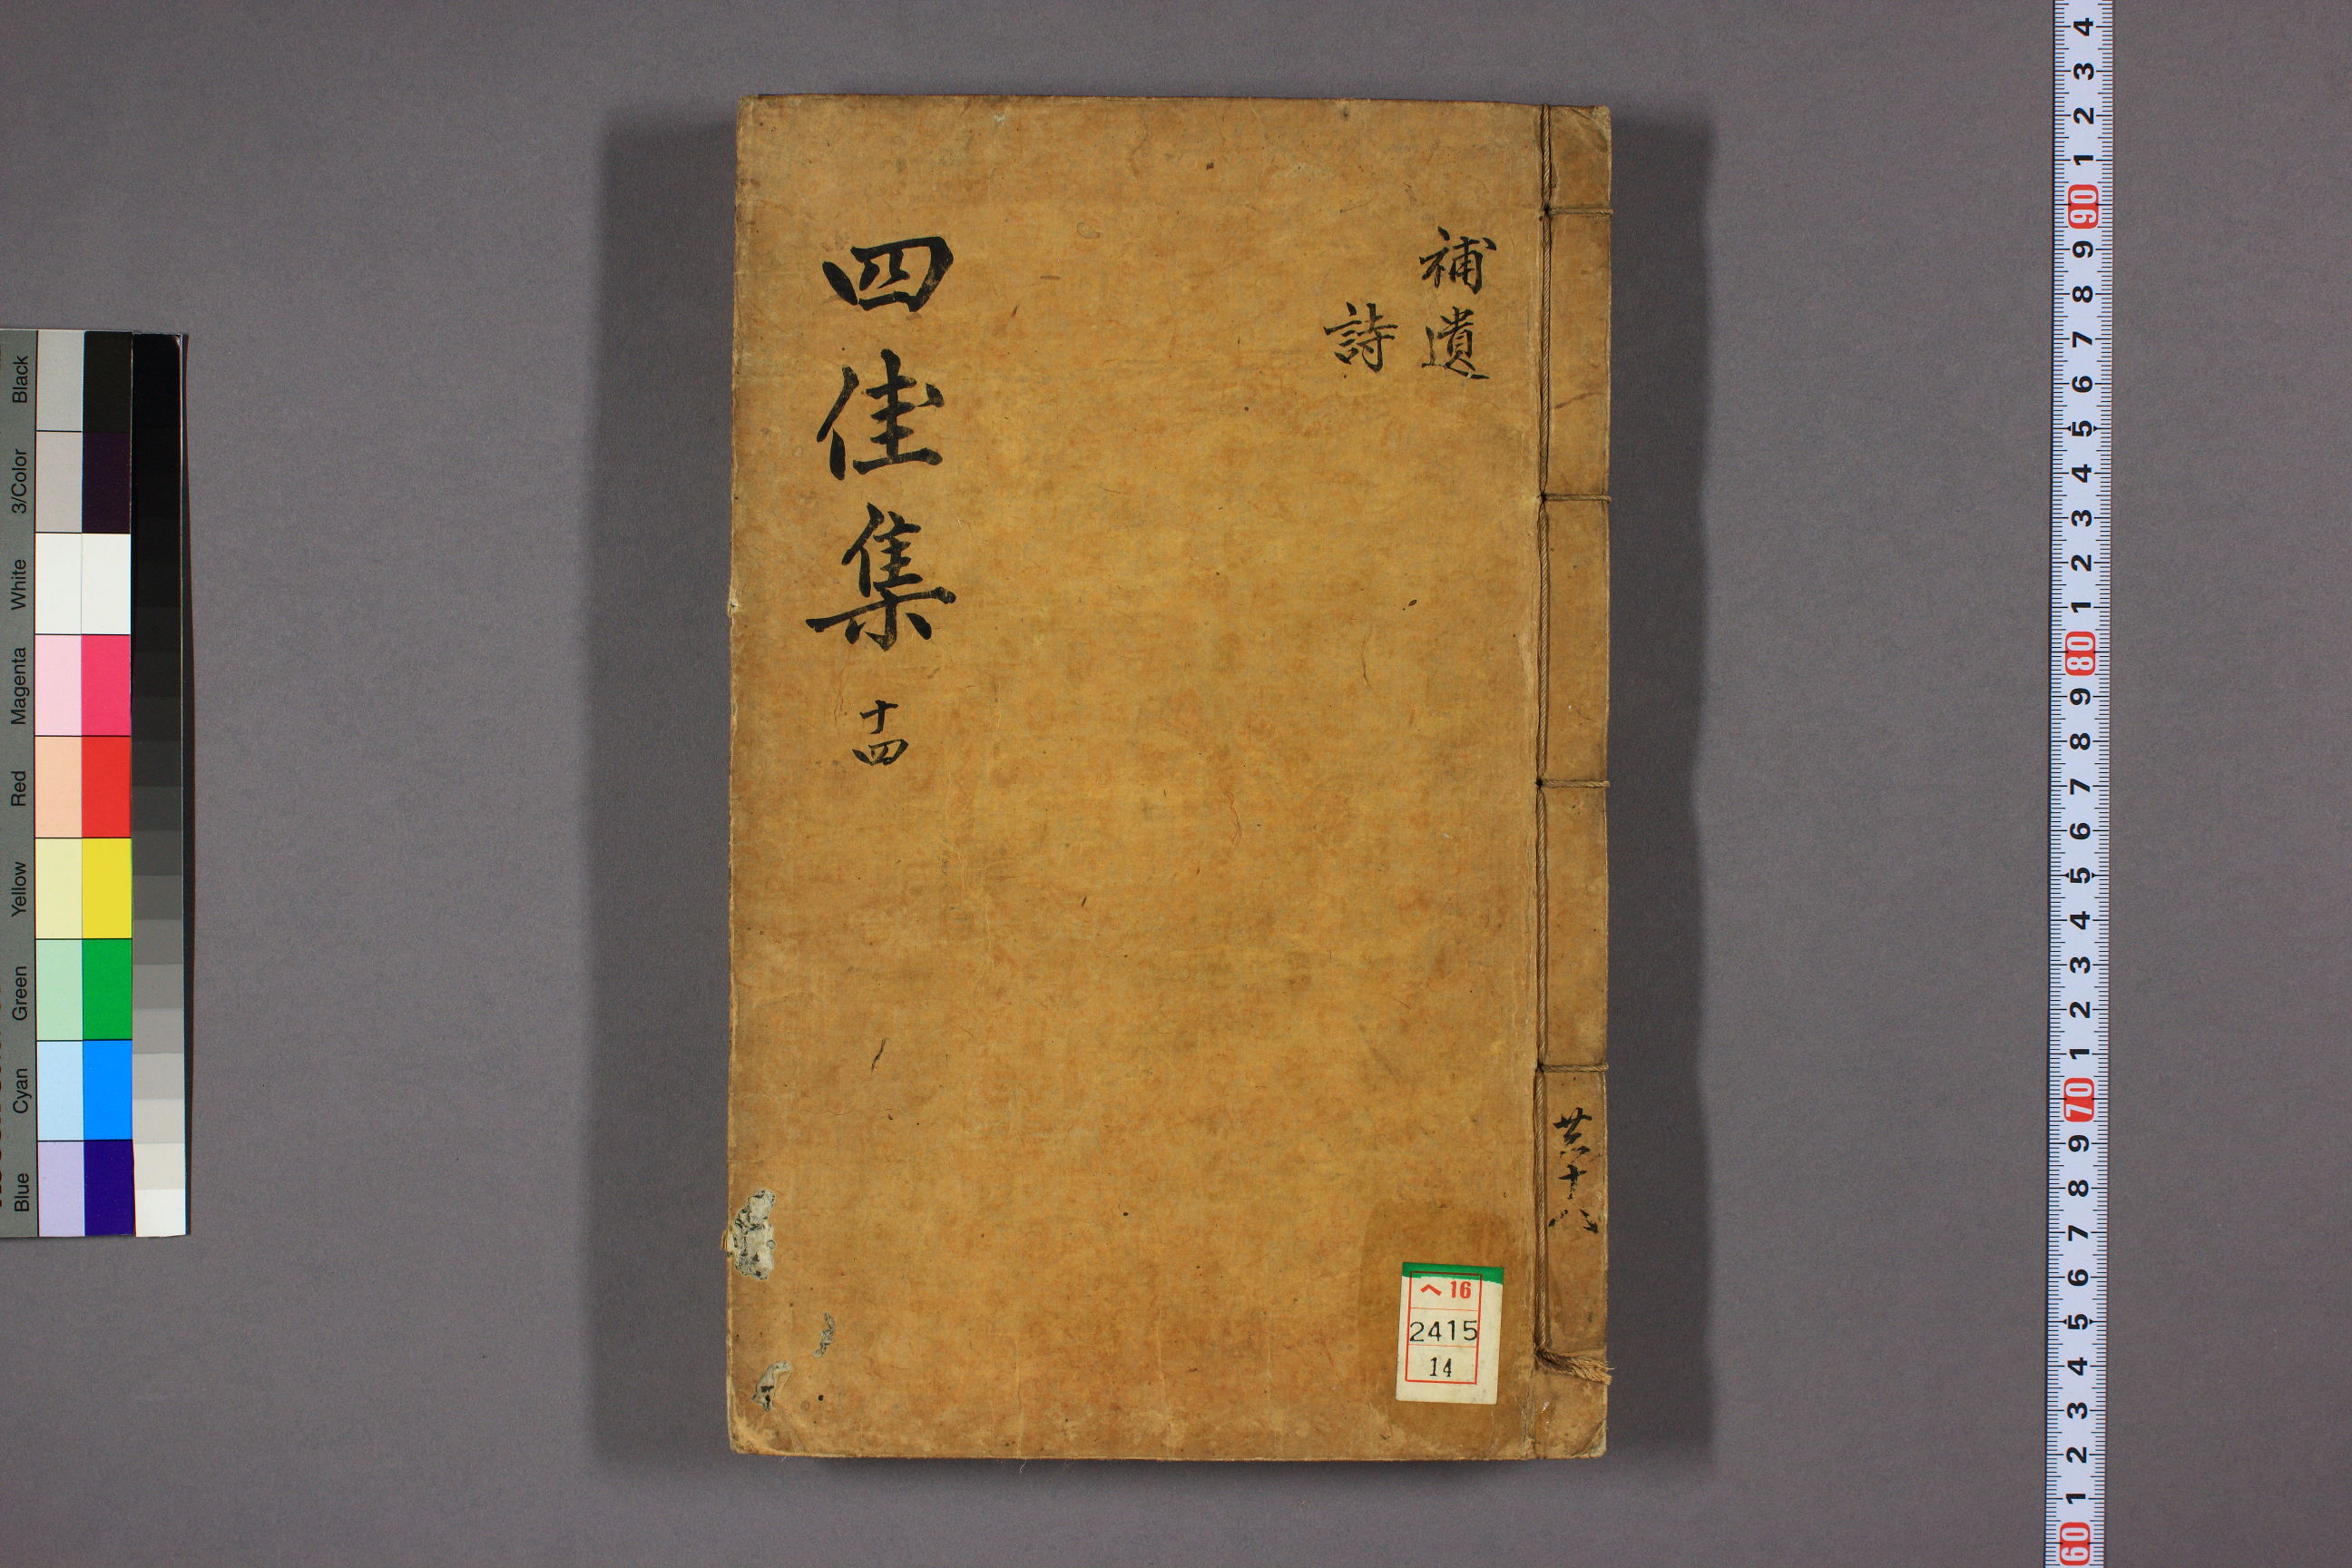 補遺
詩
四佳集 十四
共十八
ヘ 16
2415
14
Black
3/Color
White
Magenta
Red
Yellow
Green
Cyan
Blue
4
3
2
1
90
9
8
7
6
5
4
3
2
1
80
9
8
7
6
5
4
3
2
1
70
9
8
7
6
5
4
3
2
1
60